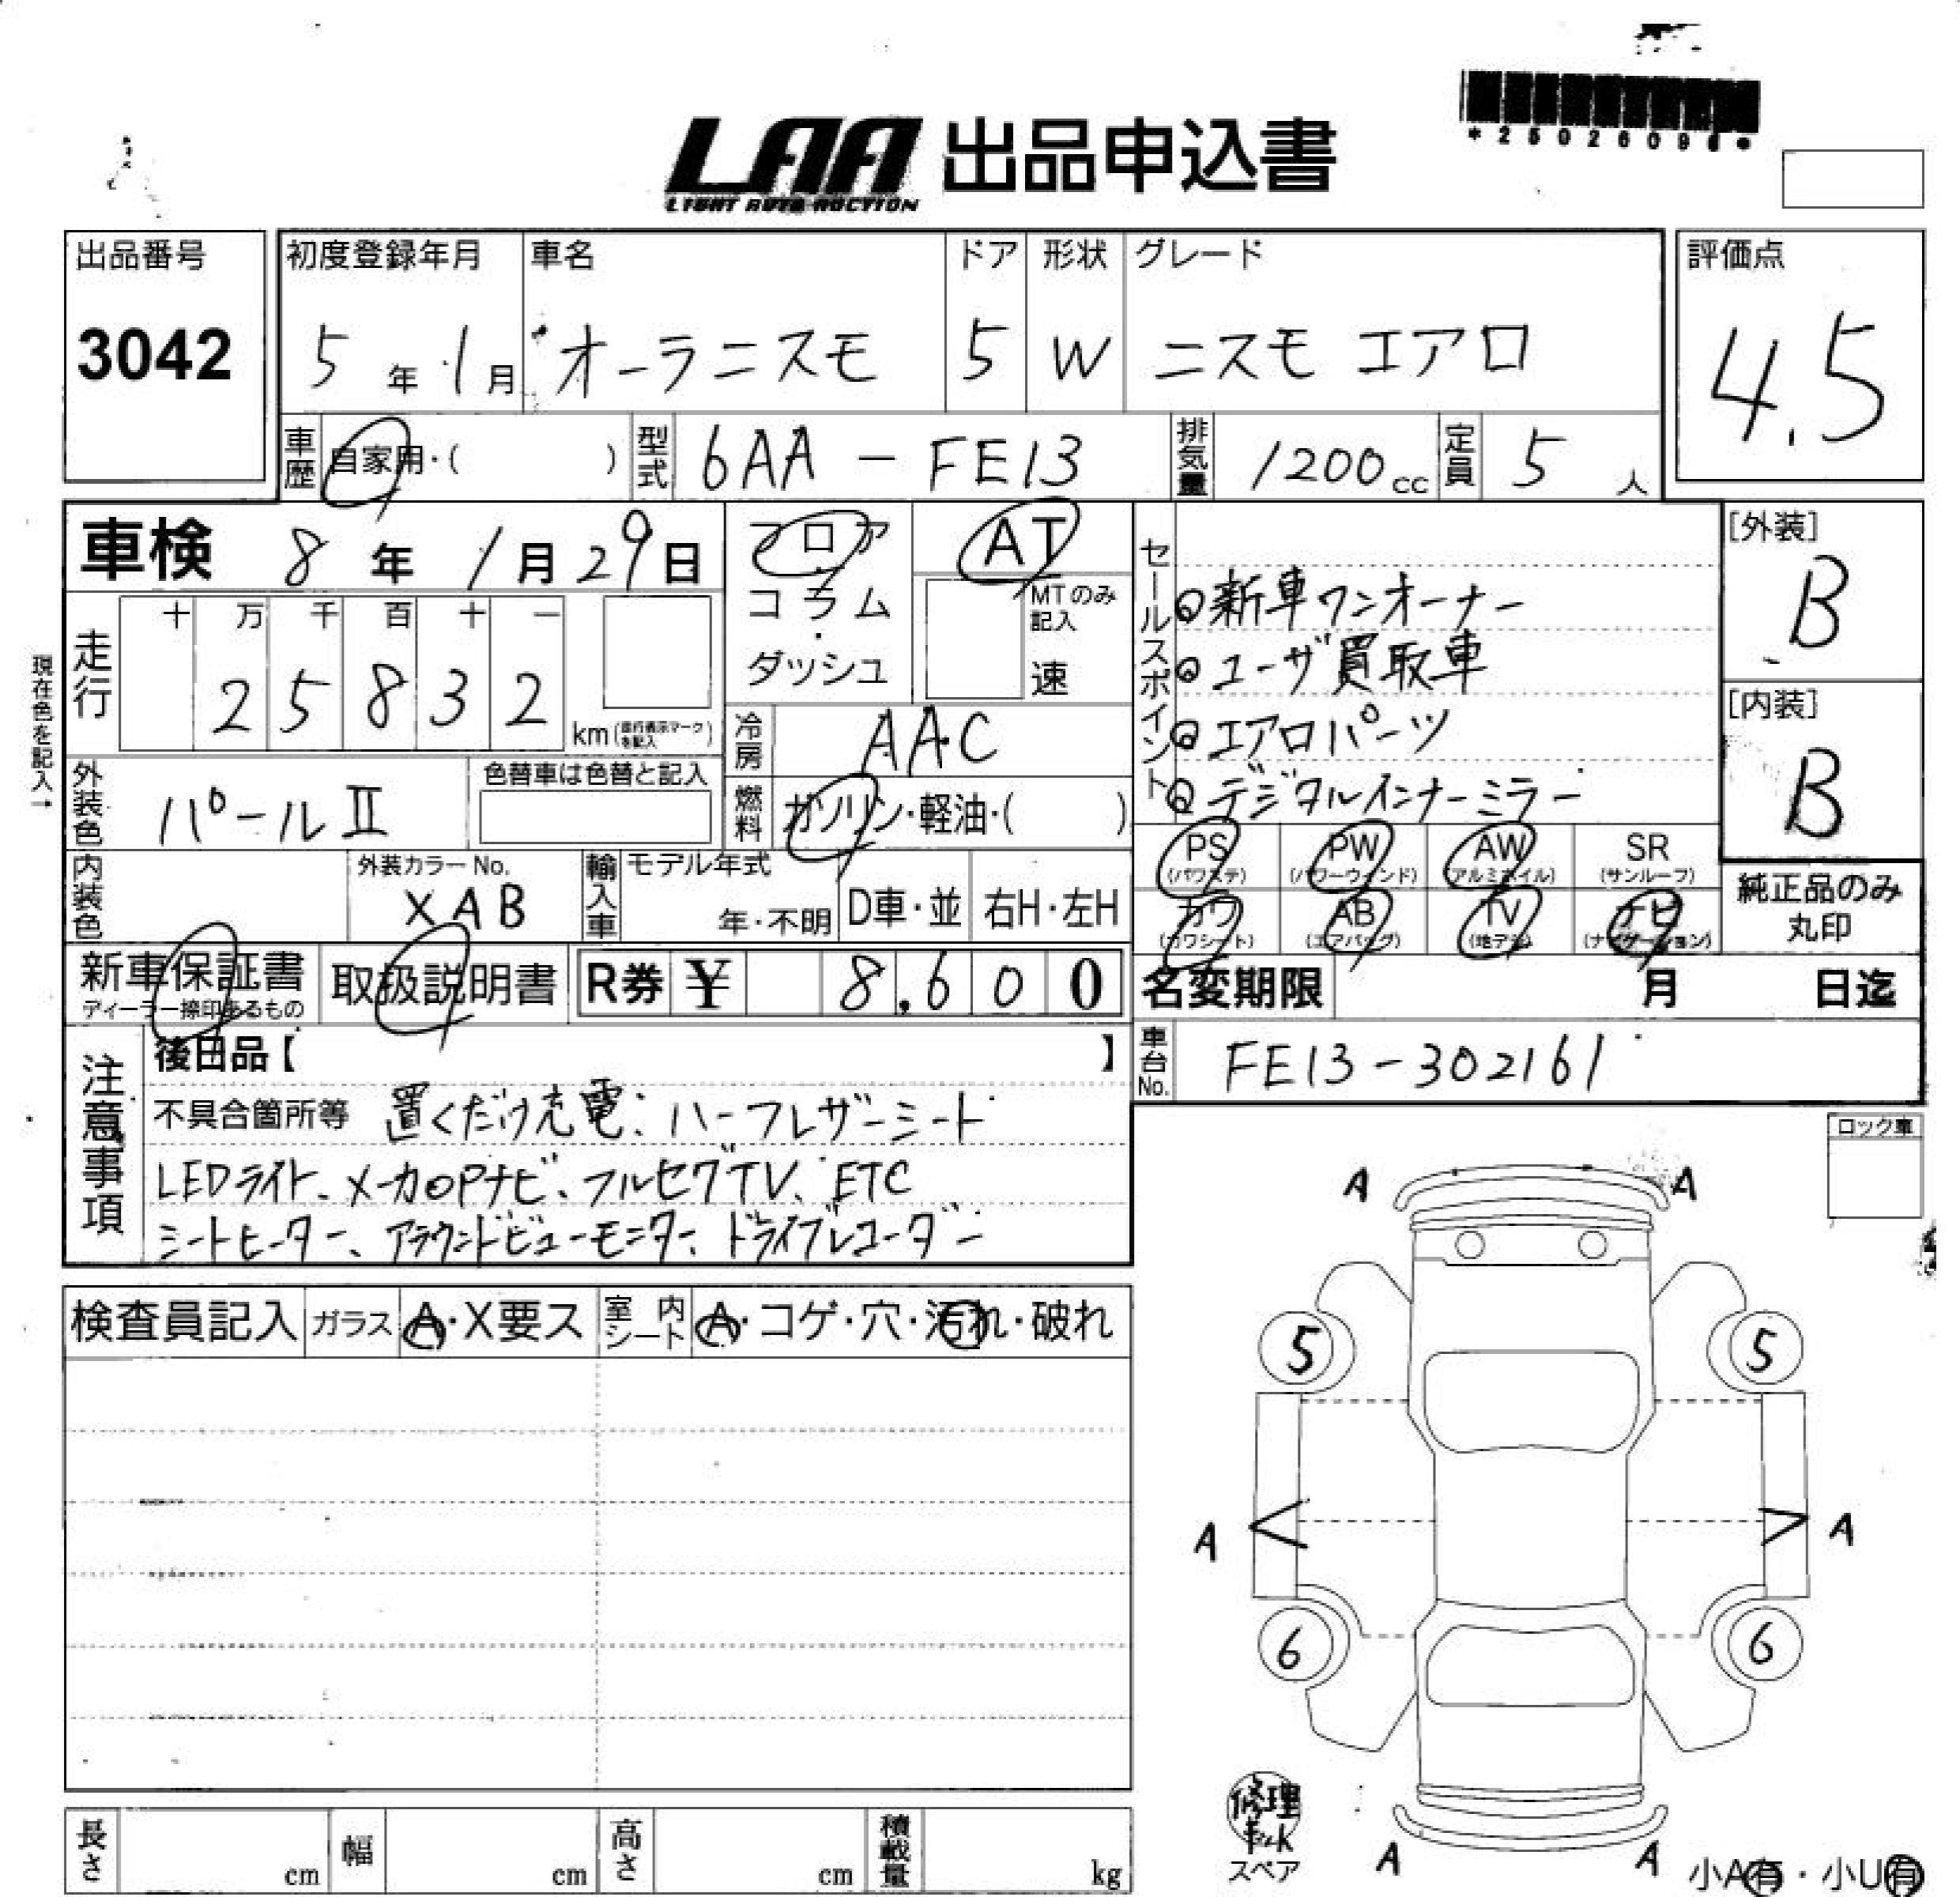 LAA 出品申込書
LIGHT AUTO AUCTION
出品番号
3042
初度登録年月
5年1月
車名
オーラニスモ
ドア
5
形状
W
グレード
ニスモ エアロ
評価点
4.5
車歴
自家用・( )
型式
6AA - FE13
排気量
1200cc
定員
5人
車検 8年1月29日
フロア
・
コラム
・
ダッシュ
AT
MTのみ記入
速
セールスポイント
◎新車ワンオーナー
◎ユーザ買取車
◎エアロパーツ
◎デジタルインナーミラー
[外装]
B
[内装]
B
現在色を記入→
走行
十 万 千 百 十 一
2 5 8 3 2
km(走行表示マークを記入)
冷房
AAC
外装色
パールⅡ
色替車は色替と記入
燃料
ガソリン・軽油・( )
PS (パワステ)
PW (パワーウィンド)
AW (アルミホイル)
SR (サンルーフ)
カワ (カワシート)
AB (エアバッグ)
TV (地デジ)
ナビ (ナビゲーション)
純正品のみ丸印
内装色
外装カラーNo.
XAB
輸入車
モデル年式
年・不明
D車・並
右H・左H
新車保証書
ディーラー捺印あるもの
取扱説明書
R券 ¥ 8,600
名変期限 月 日迄
車台No.
FE13-302161
注意事項
後日品【 】
不具合箇所等 置くだけ充電、ハーフレザーシート
LEDライト、メーカOPナビ、フルセグTV、ETC
シートヒーター、アラウンドビューモニター、ドライブレコーダー
ロック車
A A
検査員記入
ガラス
A・X要ス
室内シート
A・コゲ・穴・汚れ・破れ
5 5
A A
6 6
修理キット
スペア
A A
小A有・小U有
長さ cm
幅 cm
高さ cm
積載量 kg